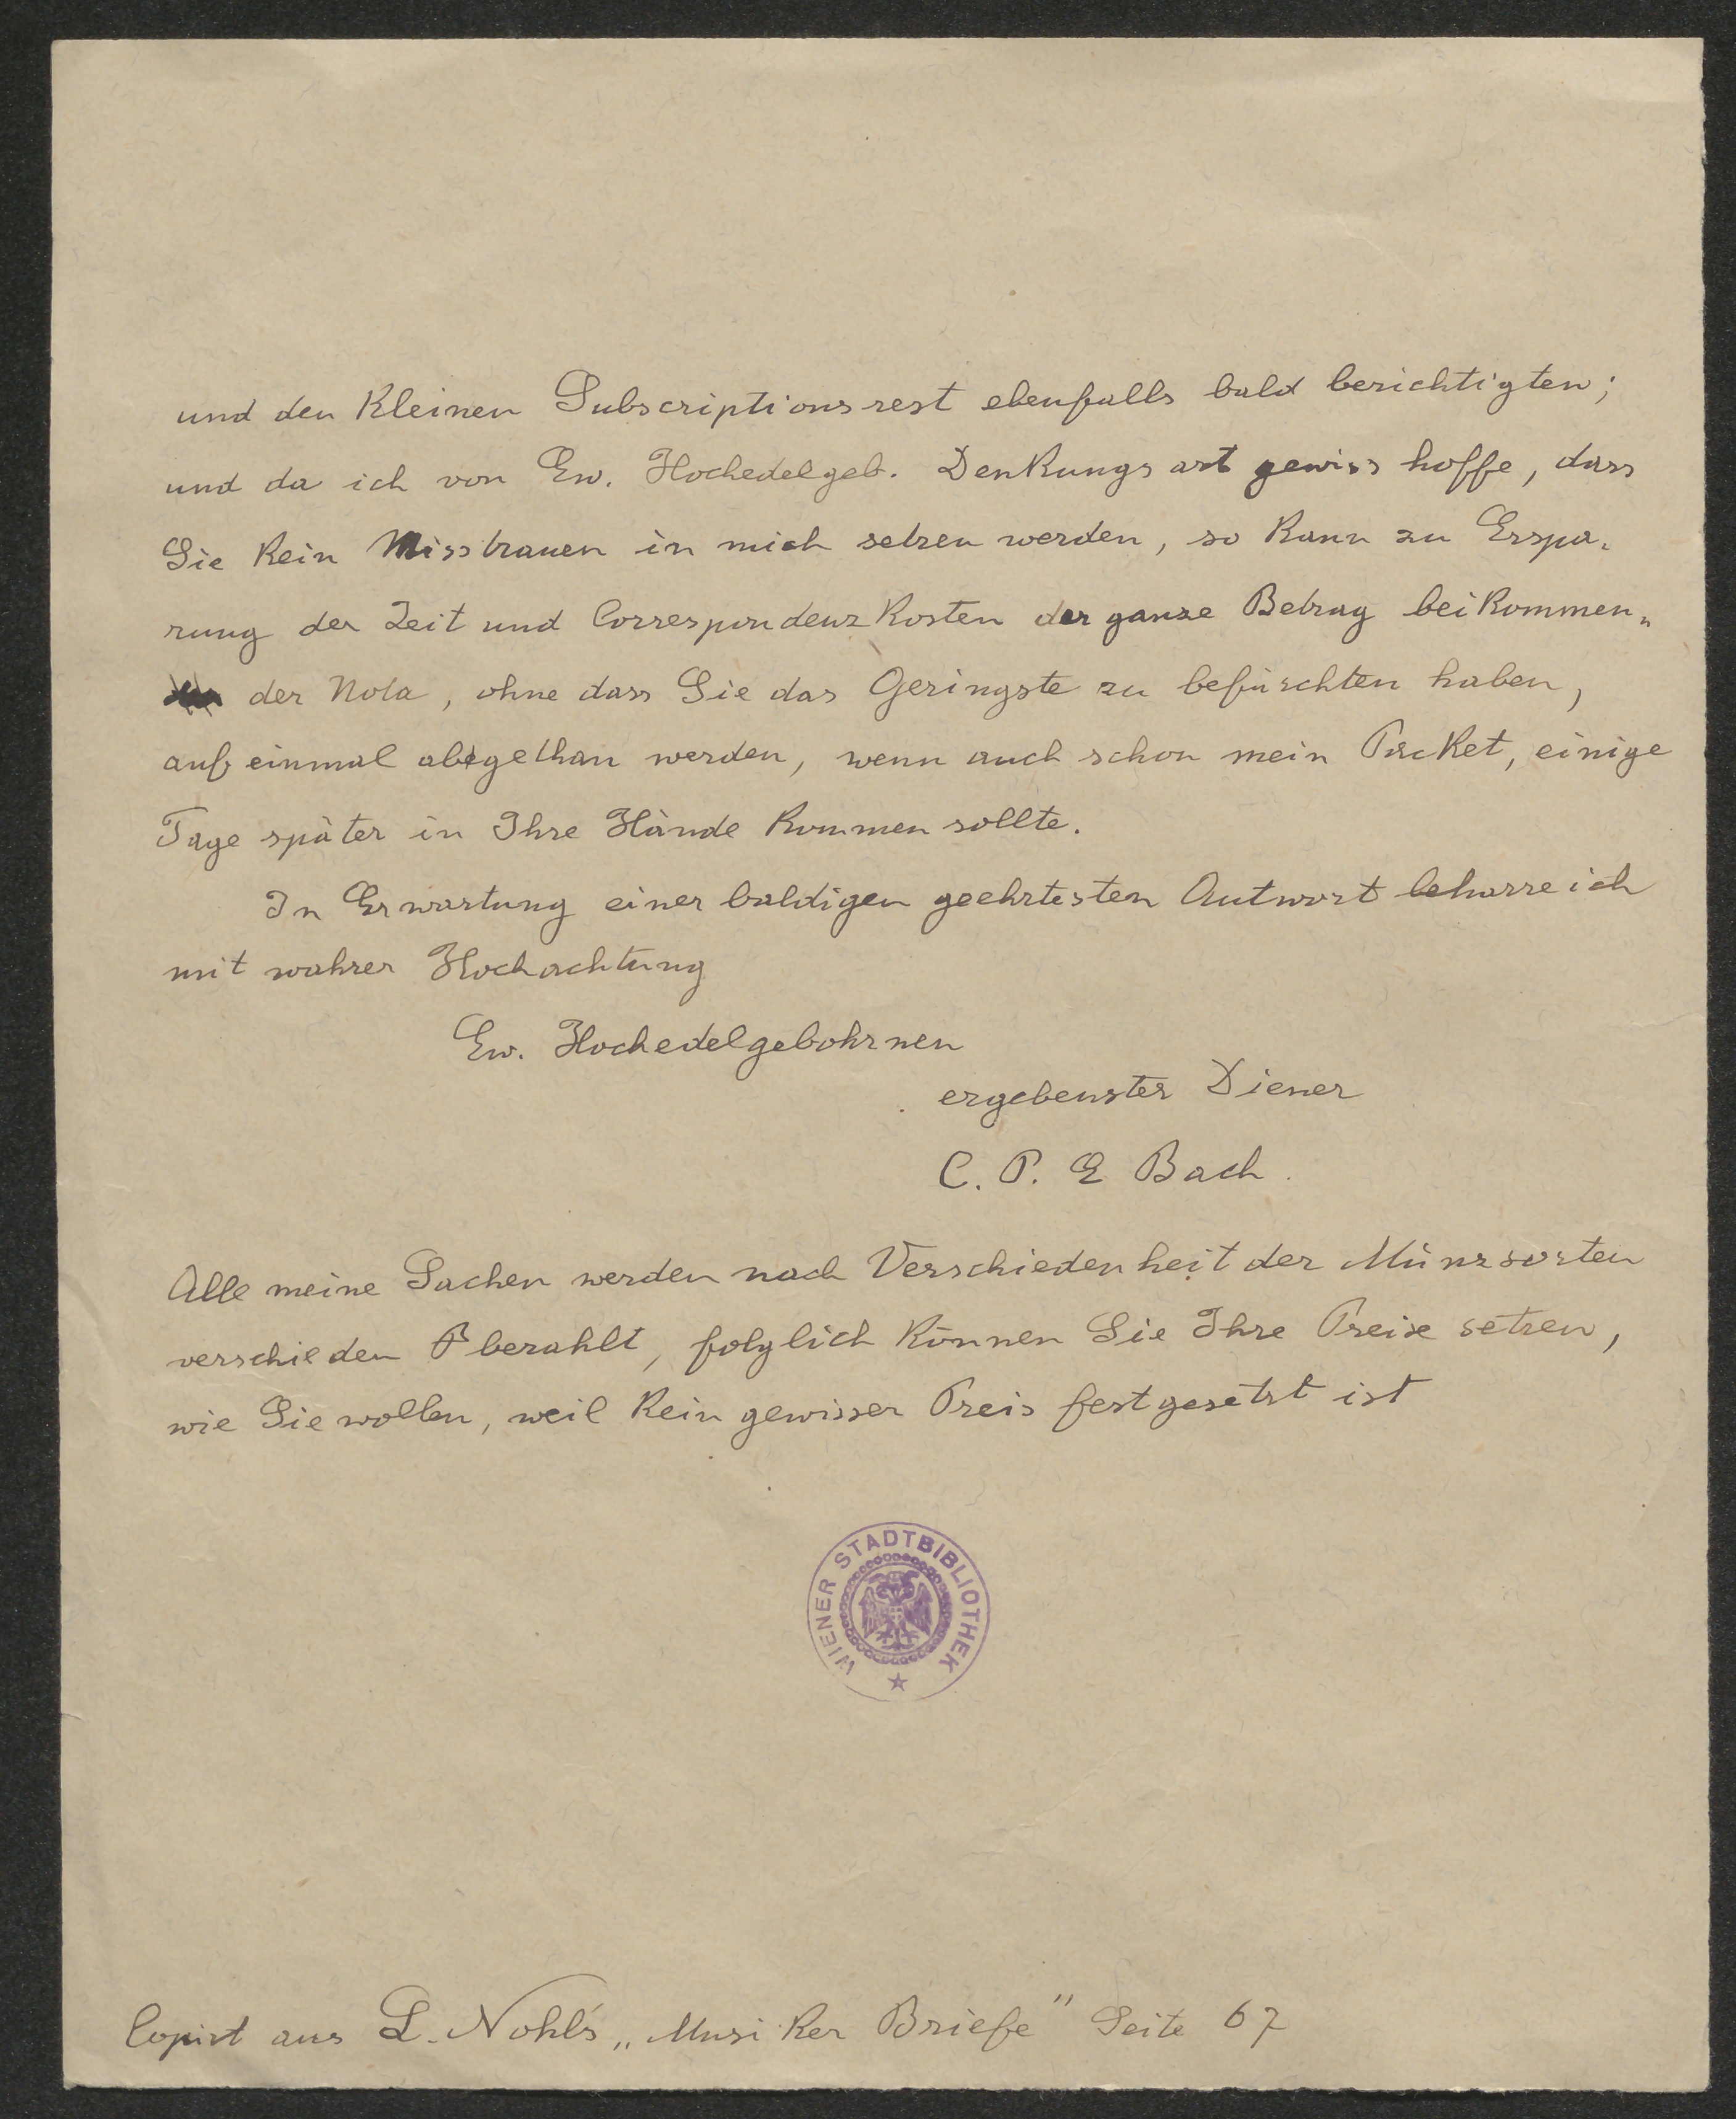 und den kleinen Subscriptionsrest ebenfalls bald berichtigten;
und da ich von Ew. Hochedelgeb. Denkungsart gewiss hoffe, dass
Sie kein Misstrauen in mich setzen werden, so kann zu Erspa-
rung der Zeit und Correspondenzkosten der ganze Betrag beikommen„
der Nota, ohne dass Sie das Geringste zu befürchten haben,
auf einmal abgethan werden, wenn auch schon mein Packet, einige
Tage später in Ihre Hände kommen sollte.
In Erwartung einer baldigen geehrtesten Antwort beharre ich
mit wahrer Hochachtung
Ew. Hochedelgebohrnen
ergebenster Diener
C. P. E Bach.
Alle meine Sachen werden nach Verschiedenheit der Münzsorten
verschieden bezahlt, folglich können Sie Ihre Preise setzen,
wie Sie wollen, weil kein gewisser Preis festgesetzt ist
WIENER STADTBIBLIOTHEK
Copirt aus L. Nohl's „Musiker Briefe" Seite 67